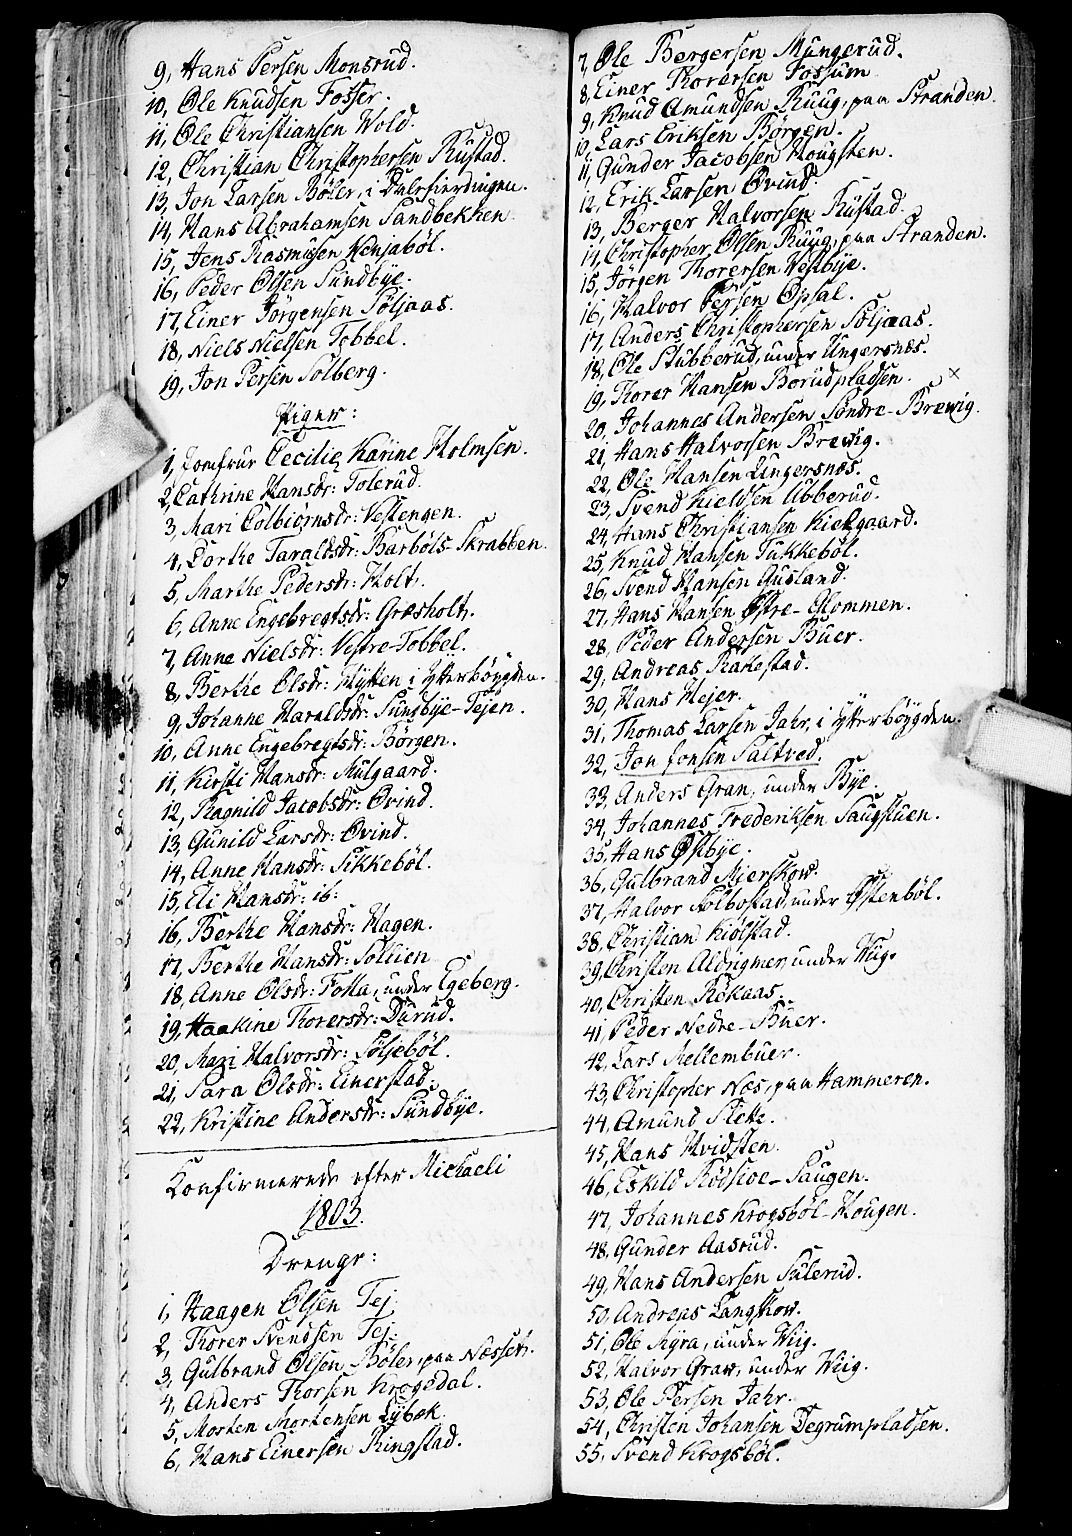 9, Hans Persen Monsrud.
10, Ole Knudsen Fosser.
11, Ole Christiansen Wold.
12, Christian Christophersen Rustad.
13, Jon Larsen Böler, i Dalefierdingen.
14, Hans Abrahamsen Sandbekken.
15, Jens Rasmusen Henjaböl.
16, Peder Olsen Sundbÿe.
17, Einer Jörgensen Söljaas.
18, Niels Nielsen Tobbel.
19, Jon Persen Solberg.
Piger:
1, Jomfrue Cecilie Karine Holmsen.
2, Cathrine Hansdr: Tolerud.
3, Mari Colbiörnsdr: Vestengen.
4, Dorthe Taraldsdr: Barböls-Skrabben.
5, Marthe Pedersdr: Holt.
6, Anne Engebregtsdr: Græsholt.
7, Anne Nielsdr: Vestre-Tobbel.
8, Berthe Olsdr: Hytten i Ytterböygden.
9, Johanne Haraldsdr: Sundbye-Tejen.
10, Anne Engebregtsdr: Börgen.
11, Kirsti Hansdr: Mulgaard.
12, Ragnild Jacobsdr: Øvind.
13, Gunild Larsdr: Øvind.
14, Anne Hansdr: Sikkeböl.
15, Eli Hansdr: ib:
16, Berthe Hansdr: Hagen.
17, Berthe Hansdr: Sollien
18, Anne Olsdr: Folla, under Egeberg.
19, Haakine Thorersdr: Durud.
20, Mari Halvorsdr: Söljeböl.
21, Sara Olsdr: Einerstad.
22, Kristine Andersdr: Sundbÿe.
Konfirmerede efter Michaeli
1803.
Drenge:
1, Haagen Olsen Tej.
2, Thorer Svendsen Tej.
3, Gulbrand Olsen Böler, paa Næsset.
4, Anders Thorsen Krogsdal.
5, Morten Mortensen Lÿbæk.
6, Hans Einersen Ringstad.
7, Ole Bergersen Mungerud.
8, Einer Thorersen Fossum
9, Knud Amundsen Ruug, paa Stranden.
10, Lars Eriksen Börgen.
11, Gunder Jacobsen Hougsten.
12, Erik Larsen Øvind.
13, Berger Halvorsen Rustad.
14, Christopher Olsen Ruug, paa Stranden.
15, Jörgen Thorersen Vestbÿe.
16, Halvor Persen Opsal.
17, Anders Christophersen Söljaas.
18, Ole Stubberud, under Ungersnæs.
19, Thorer Hansen Borudpladsen. ×
20, Johannes Andersen Söndre-Brevig.
21, Hans Halvorsen Brevig.
22, Ole Hansen Ungersnæs.
23, Svend Kieldsen Ubberud.
24, Hans Christiansen Kirkgaard.
25, Knud Hansen Tukkeböl.
26, Svend Hansen Gusland.
27, Hans Hansen Østre-Glommen.
28, Peder Andersen Buer.
29, Andreas Rakestad.
30, Hans Hejer.
31, Thomas Larsen Jahr, i Ytterböygden.
32, Jon Jonsen Saltved.
33, Anders Gran, under Bÿe.
34, Johannes Frederiksen Saugstuen.
35, Hans Østbÿe.
36, Gulbrand Mierskov.
37, Halvor Solbostad, under Østenböl.
38, Christian Kiölstad.
39, Christen Aldrigmer, under Wiig.
40, Christen Rökaas.
41, Peder Nedre-Buer.
42, Lars Mellembuer.
43, Christopher Næs, paa Hammeren.
44, Amund Slette.
45, Hans Hvidsten.
46, Eskild Rödsioe-Saugen.
47, Johannes Krogsböl-Hougen.
48, Gunder Aasrud.
49, Hans Andersen Sulerud.
50, Andreas Langskov.
51, Ole Myra, under Wiig.
52, Halvor Grav, under Wiig.
53, Ole Persen Jahr.
54, Christen Johansen Degrumpladsen.
55, Svend Krogsböl.